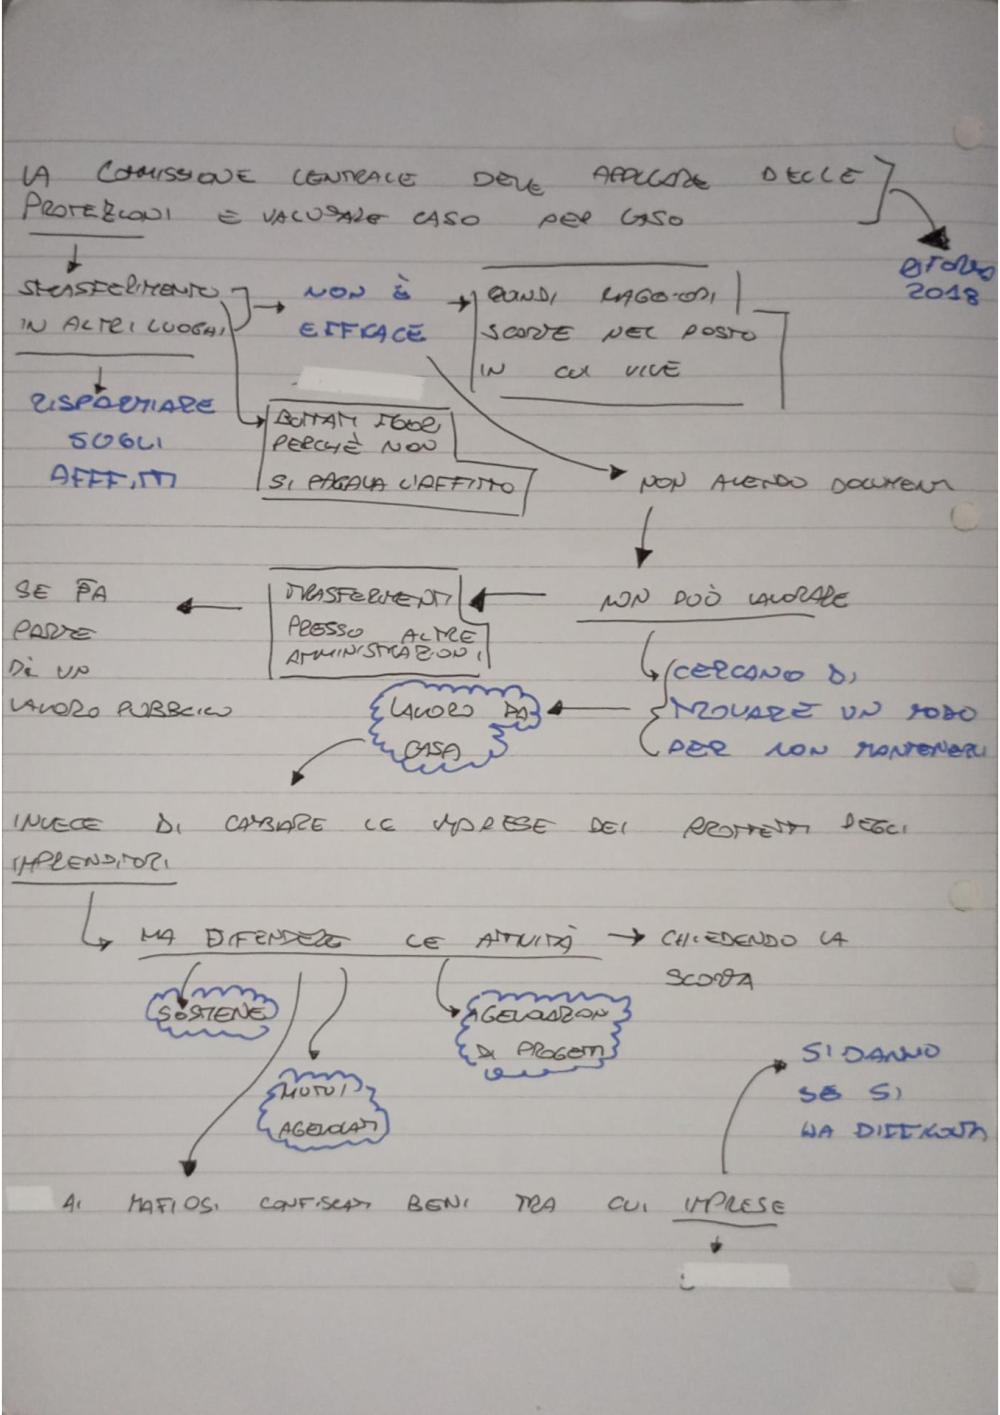 LA COMMISSIONE CENTRALE DEVE APPLICARE DELLE
PROTEZIONI E VALUTARE CASO PER CASO
OTTOBRE
2018
STRASFERIMENTO
IN ALTRI LUOGHI
NON È
EFFICACE
QUINDI
SCORTE NEL POSTO
IN CUI VIVE
RISPARMIARE
SUGLI
AFFITTI
BUTTATI FUORI
PERCHÈ NON
SI PAGAVA L'AFFITTO
NON AVENDO DOCUMENTI
NON PUÒ LAVORARE
TRASFERIMENTI
PRESSO ALTRE
AMMINISTRAZIONI
SE FA
PARTE
DI UN
LAVORO PUBBLICO
CERCANO DI
TROVARE UN MODO
PER NON MANTENERLI
LAVORO DA
CASA
INVECE DI CAMBIARE LE IMPRESE DEI PROTETTI DEGLI
IMPRENDITORI
MA DIFENDERE LE ATTIVITÀ → CHIEDENDO LA
SCORTA
SOSTENE
AGEVOLAZIONI
DI PROGETTI
MUTUI
AGEVOLATI
SI DANNO
SE SI
HA DIFFICOLTÀ
AI MAFIOSI CONFISCATI BENI TRA CUI IMPRESE